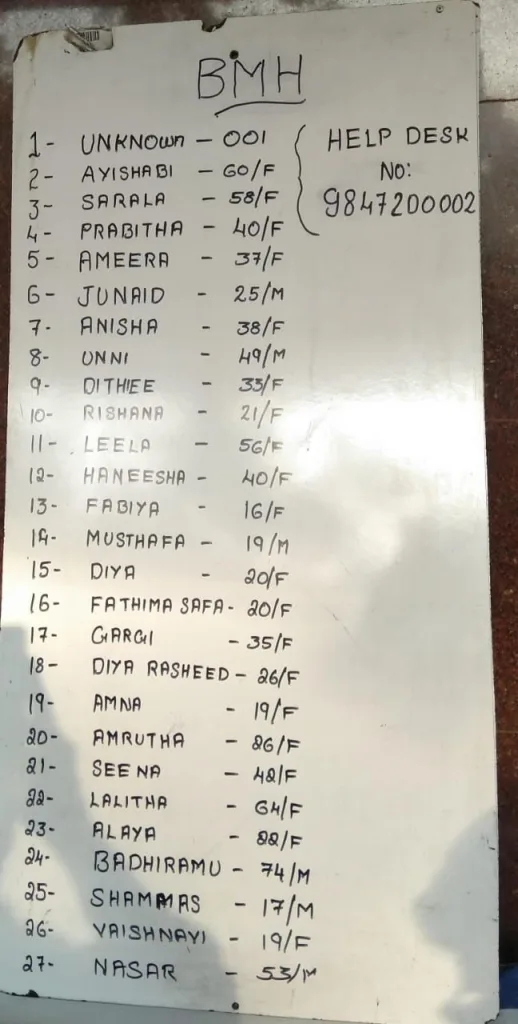 BMH
1- UNKNOWN - 001
2- AYISHABI - 60/F
3- SARALA - 58/F
4- PRABITHA - 40/F
HELP DESK
NO:
9847200002
5- AMEERA - 37/F
6- JUNAID - 25/M
7- ANISHA - 38/F
8- UNNI - 49/M
9- DITHIEE - 33/F
10- RISHANA - 21/F
11- LEELA - 56/F
12- HANEESHA - 40/F
13- FABIYA - 16/F
14- MUSTHAFA - 19/M
15- DIYA - 20/F
16- FATHIMA SAFA - 20/F
17- GARGI - 35/F
18- DIYA RASHEED - 26/F
19- AMNA - 19/F
20- AMRUTHA - 26/F
21- SEENA - 42/F
22- LALITHA - 64/F
23- ALAYA - 22/F
24- BADHIRAMU - 74/M
25- SHAMMAS - 17/M
26- VAISHNAVI - 19/F
27- NASAR - 53/M